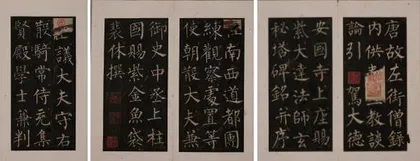 唐故左街僧錄
内供教談
論引駕大德
安國寺上座賜
紫大達法師玄
秘塔碑銘并序
江南西道都團
練觀察處置等
使朝散大夫兼
御史中丞上柱
國賜紫金魚袋
裴休撰
議大夫守右
散騎常侍充集
賢殿學士兼判